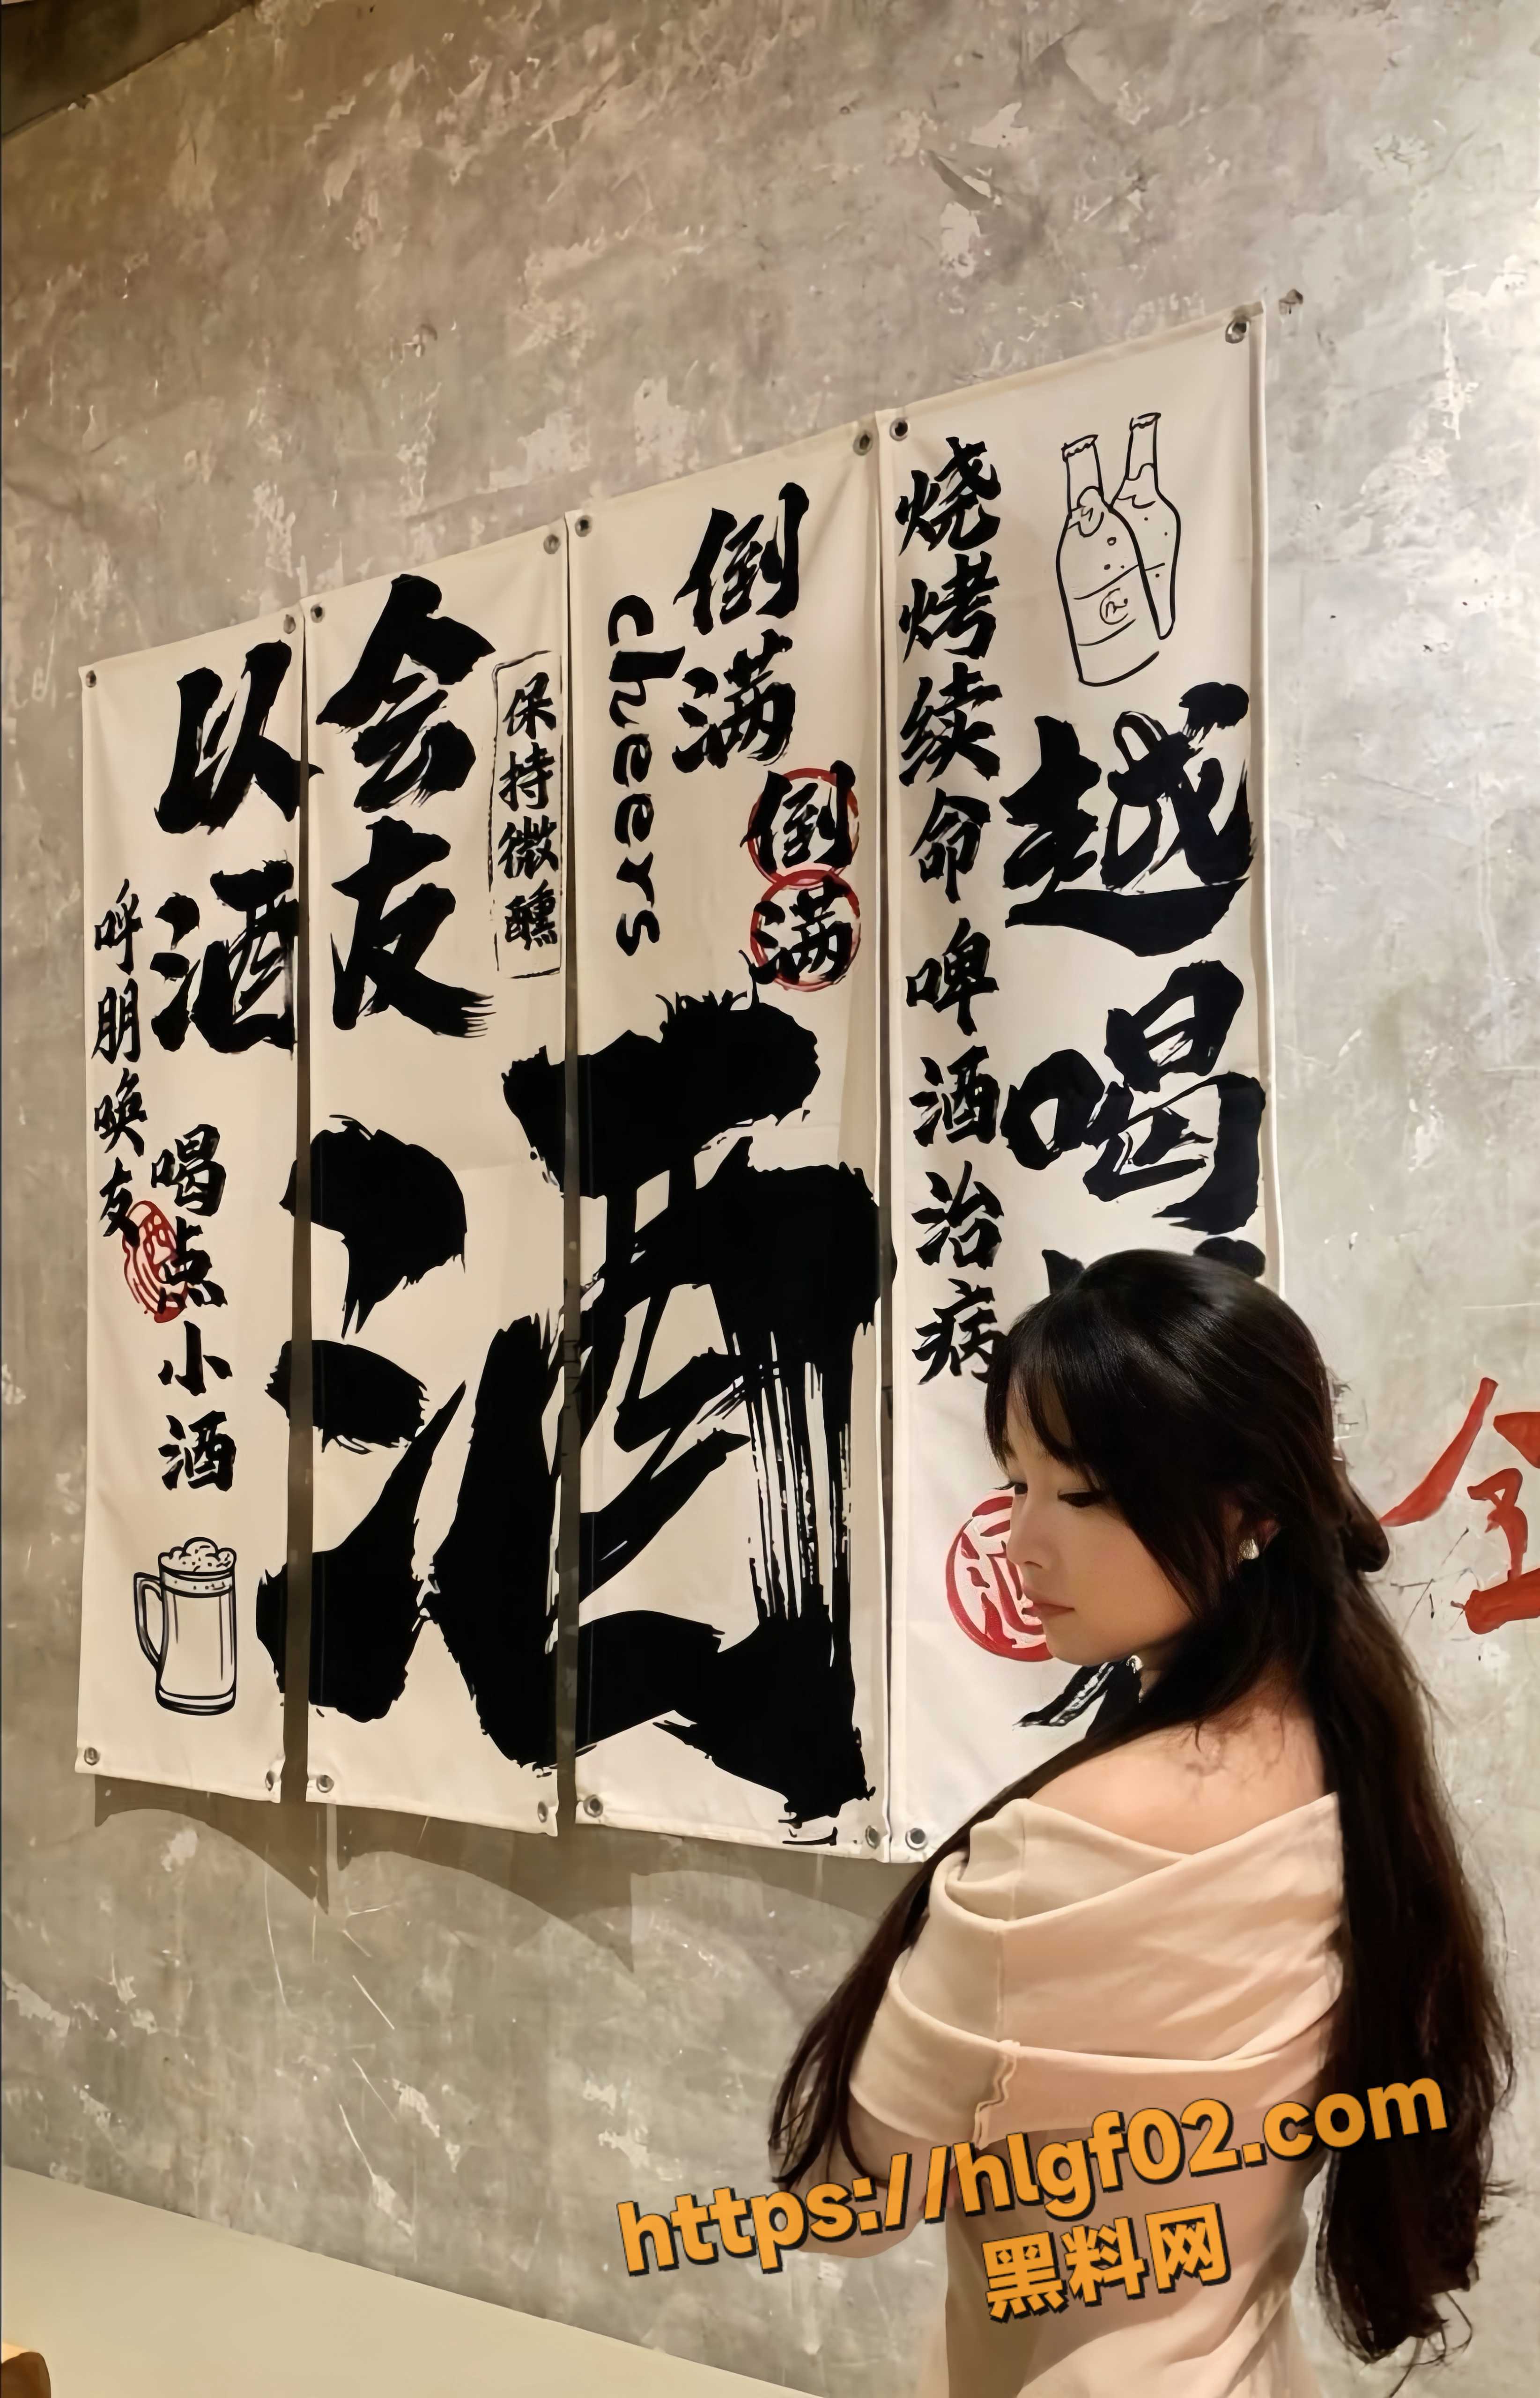 以酒
会友
呼朋唤友
喝点小酒
保持微醺
cheers
倒满
倒满
酒
烧烤续命啤酒治病
越喝
酒
https://hlgf02.com
黑料网